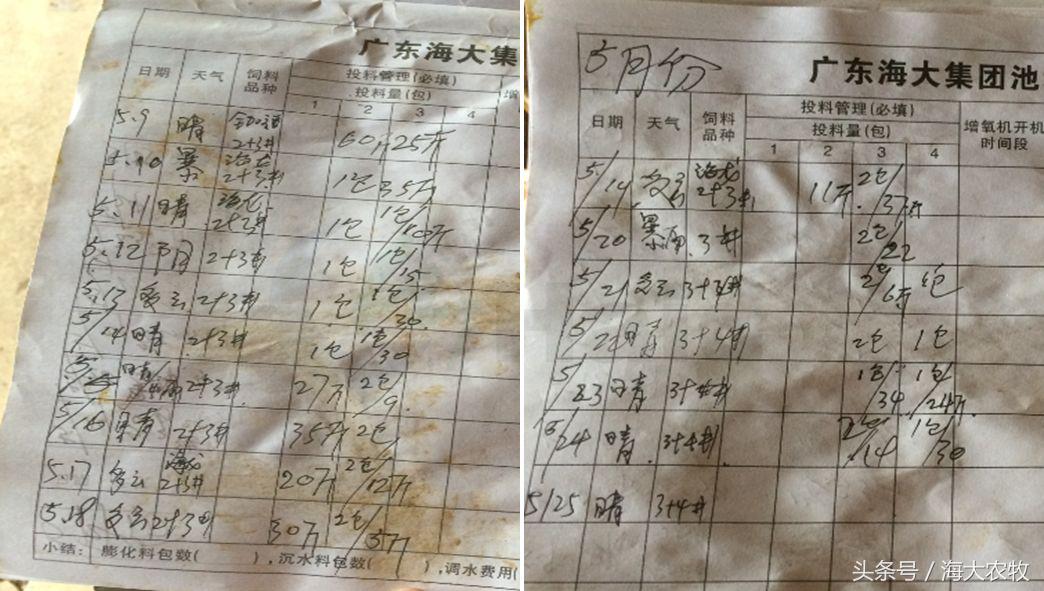 广东海大集
日期 天气 饲料品种 投料管理(必填)
投料量(包) 增
1 2 3 4
5.9 晴 2+3# 60斤 25斤
5.10 暴 海龙 2+3# 1包 35斤
5.11 晴 海龙 2+3# 1包 1包/10斤
5.12 阴 2+3# 1包 1包/15
5.13 多云 2+3# 1包 1包/30
5/14 晴 2+3# 1包 1包/30
5/ 晴/ 2+3# 27斤 2包/9
5/16 晴 2+3# 35斤 2包
5.17 多云 海龙 2+3# 20斤 2包/12斤
5.18 多云 2+3# 30斤 2包/5斤
小结: 膨化料包数( ),沉水料包数( ),调水费用(
5月份
广东海大集团池
日期 天气 饲料品种 投料管理(必填) 增氧机开机时间段
投料量(包)
1 2 3 4
5/19 多云 海龙 2+3# 11斤 2包/3斤
5/20 暴雨 3# 2包/22
5/21 多云 3+4# 2包/6斤 1包
5/22 晴 3+4# 2包 1包
5/23 晴 3+4# 1包/34 1包/24斤
5/24 晴 3+4# 2包/14 1包/30
5/25 晴 3+4#
头条号 / 海大农牧